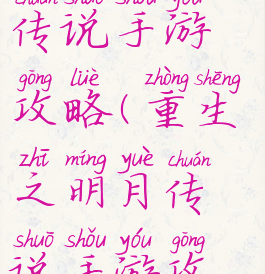 chuán shuō shǒu yóu
传说手游
gōng lüè zhòng shēng
攻略(重生
zhī míng yuè chuán
之明月传
shuō shǒu yóu gōng
说手游攻